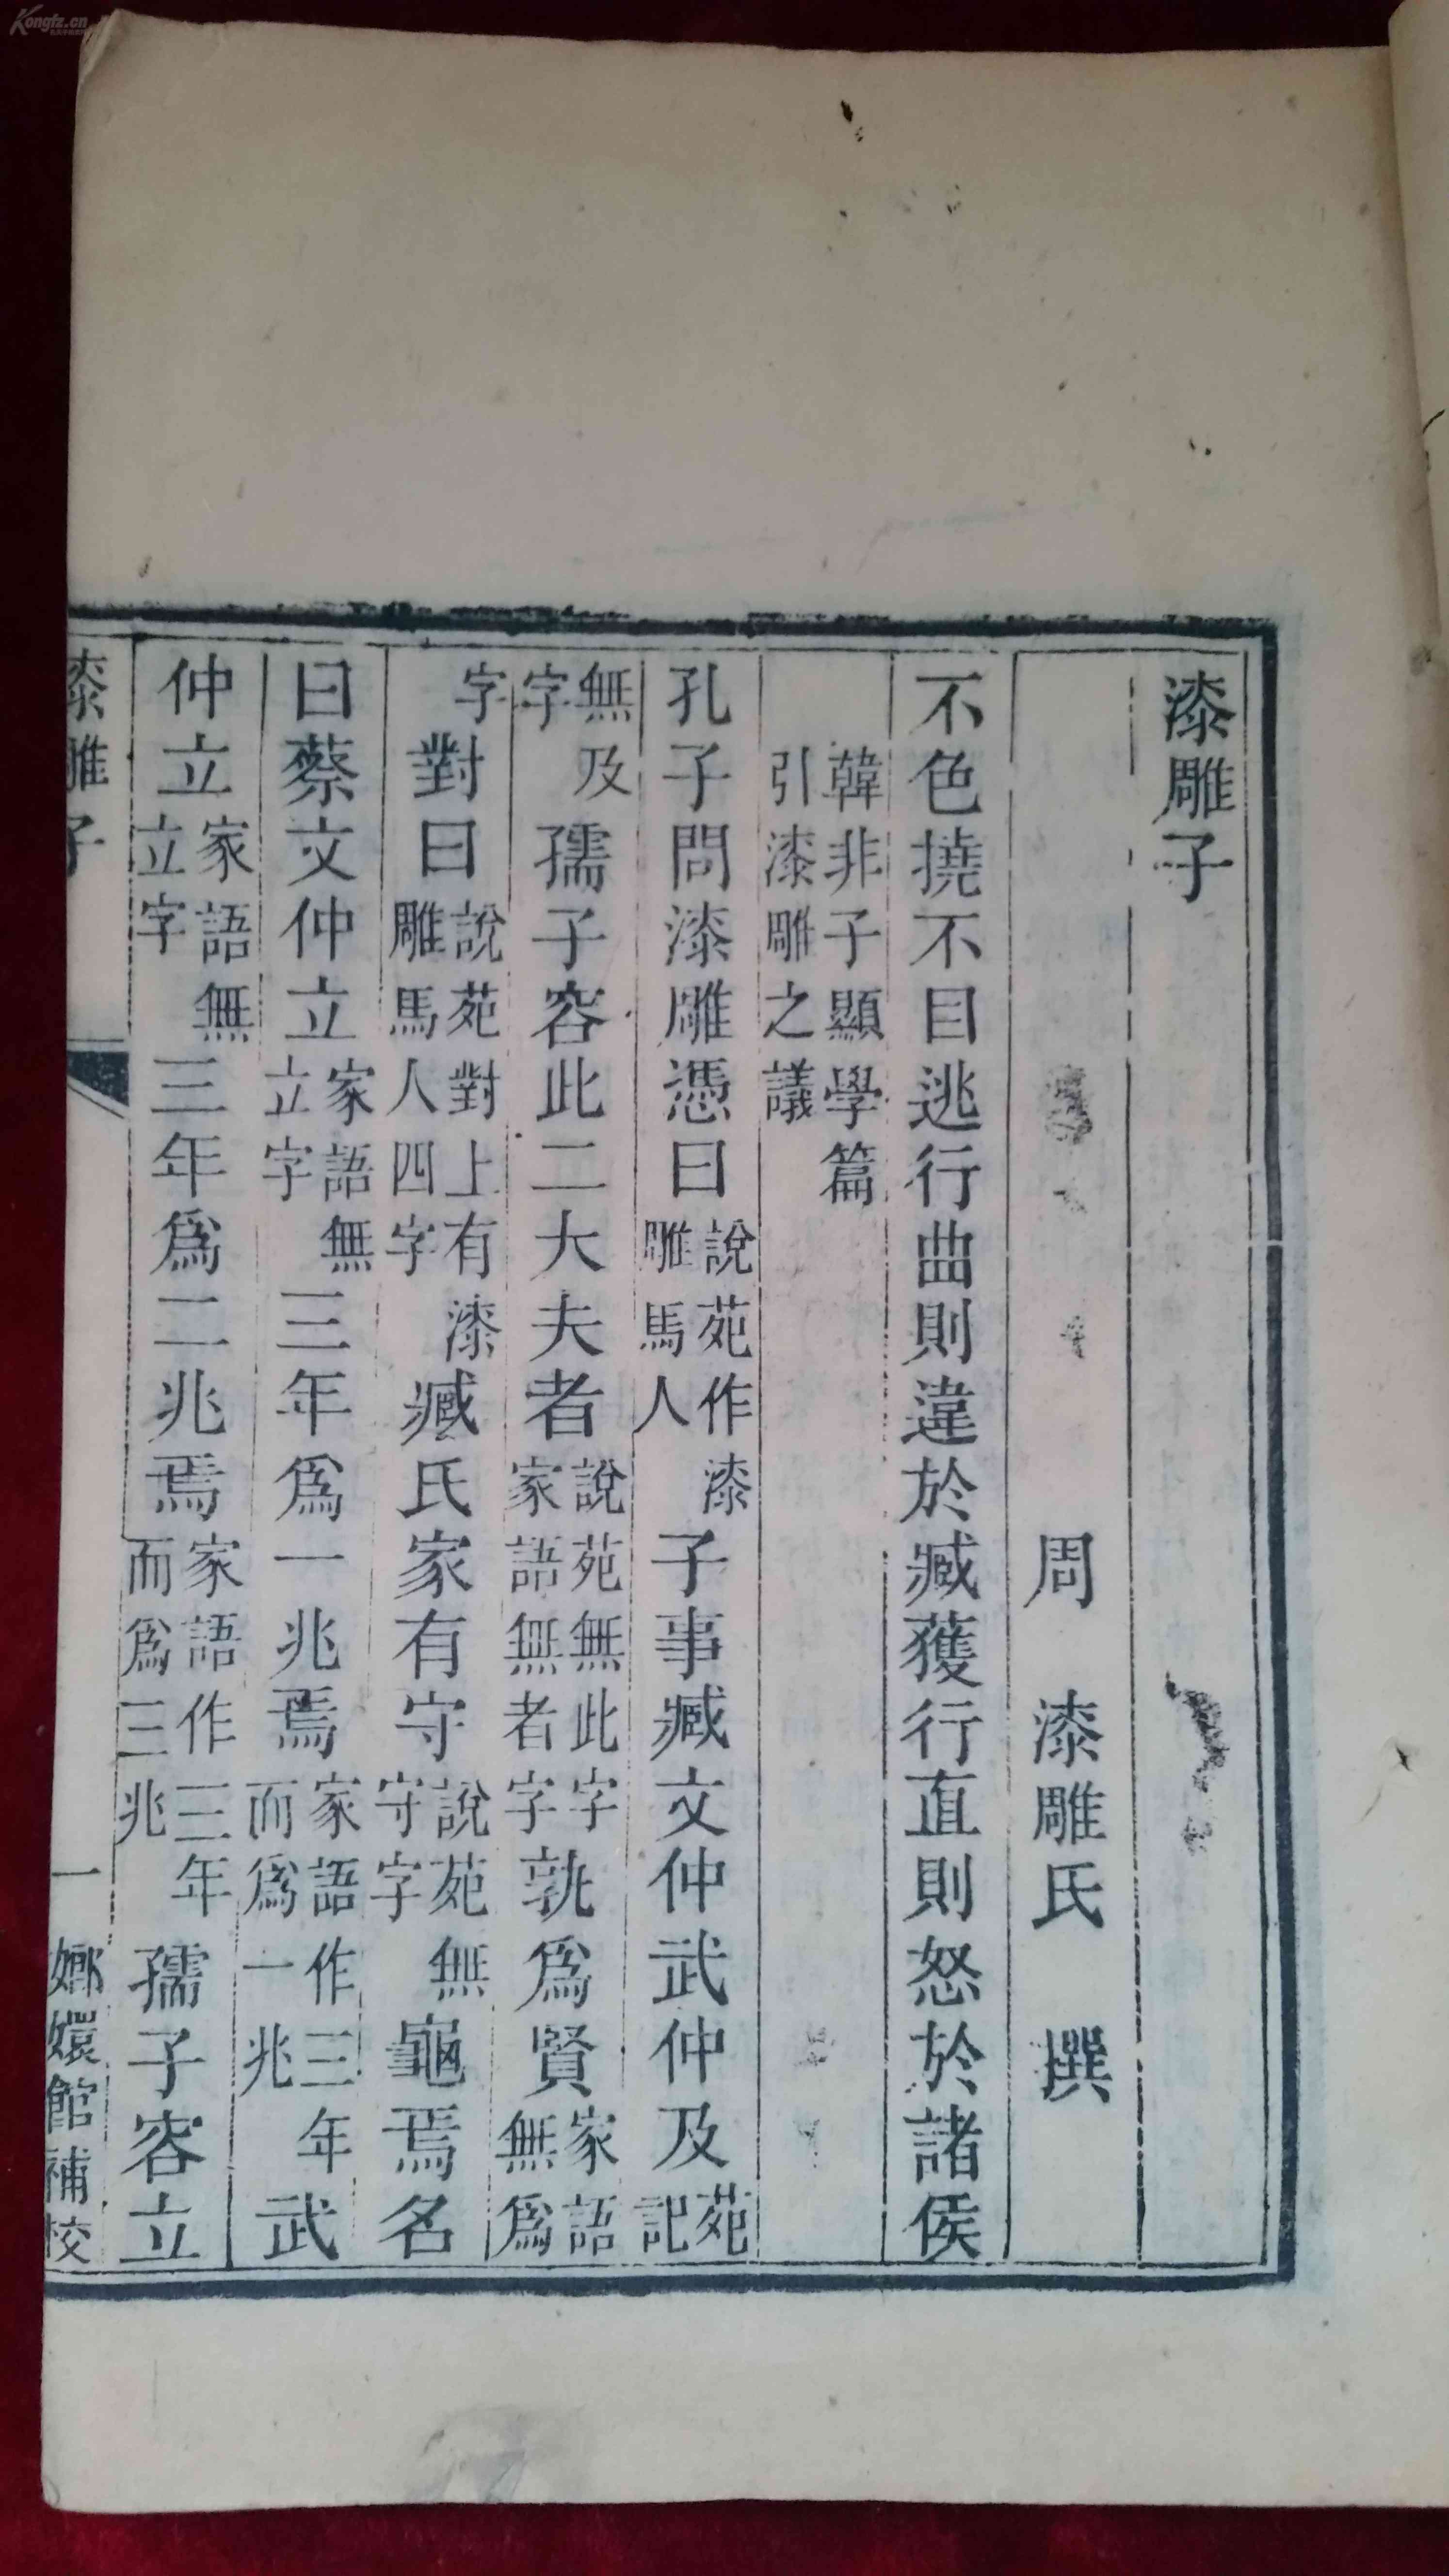 漆雕子
周 漆雕氏 撰
不色撓不目逃行曲則違於臧獲行直則怒於諸侯
韓非子顯學篇
引漆雕之議
孔子問漆雕憑曰說苑作漆雕馬人子事臧文仲武仲及苑記
無及字孺子容此二大夫者說苑無此字家語無者字孰爲賢家語無爲
字對曰說苑對上有漆雕馬人四字臧氏家有守說苑無守字龜焉名
曰蔡文仲立家語無立字三年爲一兆焉家語作三年而爲一兆武
仲立家語無立字三年爲二兆焉家語作三年而爲三兆孺子容立
漆雕子
一
嫏嬛館補校
Kongfz.cn